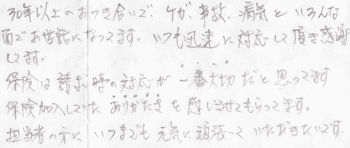 30年以上のおつき合いで、ケガ、事故、病気といろんな
面でお世話になってます。いつも迅速に対応して頂き感謝
してます。
保険は請求時の対応が一番大切だと思ってます
保険加入していたありがたさを感じさせてもらってます。
担当者の方にいつまでも元気に頑張っていただきたいです。